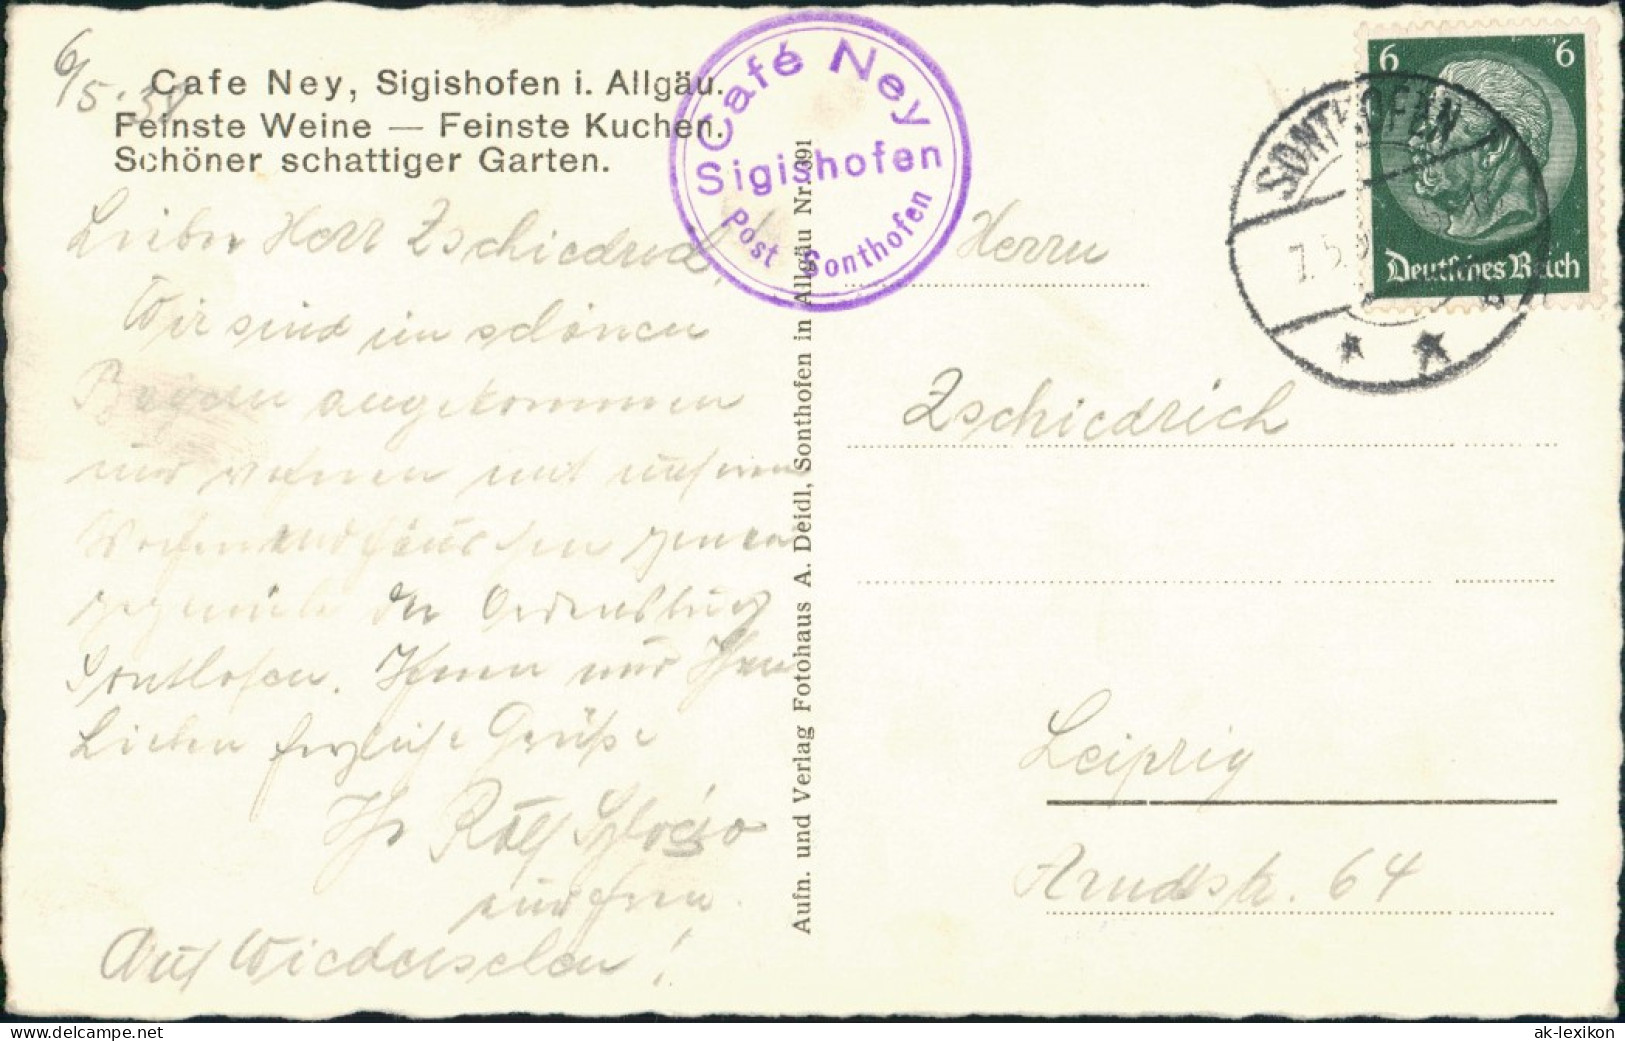 6/5. 38
Cafe Ney, Sigishofen i. Allgäu.
Feinste Weine — Feinste Kuchen.
Schöner schattiger Garten.
Café Ney
Sigishofen
Post Sonthofen
SONTHOFEN
7.5.
6 6
Deutsches Reich
Lieber Herr Zschiedrich!
Wir sind im schönen
Bayern angekommen
und wohnen mit unseren
der Ordensburg
Sonthofen. Ihnen und Ihren
Lieben herzliche Grüße
Ihr Rolf
und Frau.
Auf Wiedersehen!
Aufn. und Verlag Fotohaus A. Deidl, Sonthofen in Allgäu Nr.
Herrn
Zschiedrich
Leipzig
Arndtstr. 64
www.oldthing.de
ak-lexikon